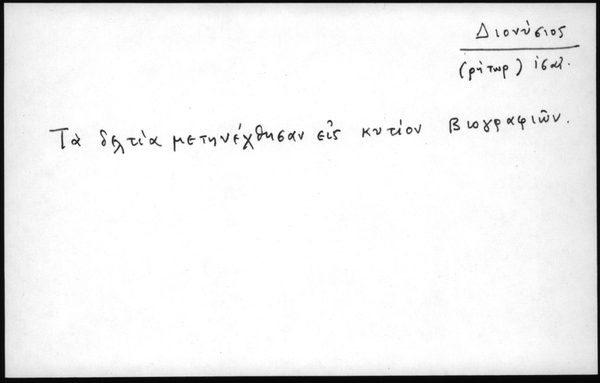 Διονύσιος
(ρήτωρ)
Τὰ δελτία μετηνέχθησαν εἰς κυτίον Βιογραφιῶν.